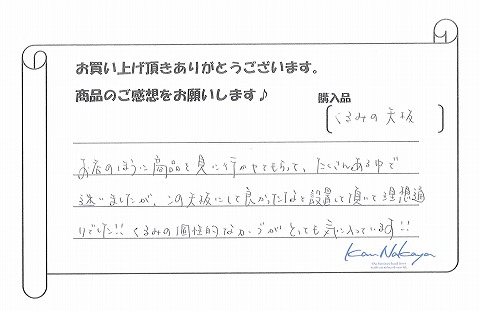 お買い上げ頂きありがとうございます。
商品のご感想をお願いします♪
購入品
くるみの天板
お店のほうに商品を見に行かせてもらって、たくさんある中で
迷いましたが、この天板にして良かったなと設置して頂いて理想通
りでした!! くるみの個性的なカーブがとっても気に入っています!!
Kan Nakaya